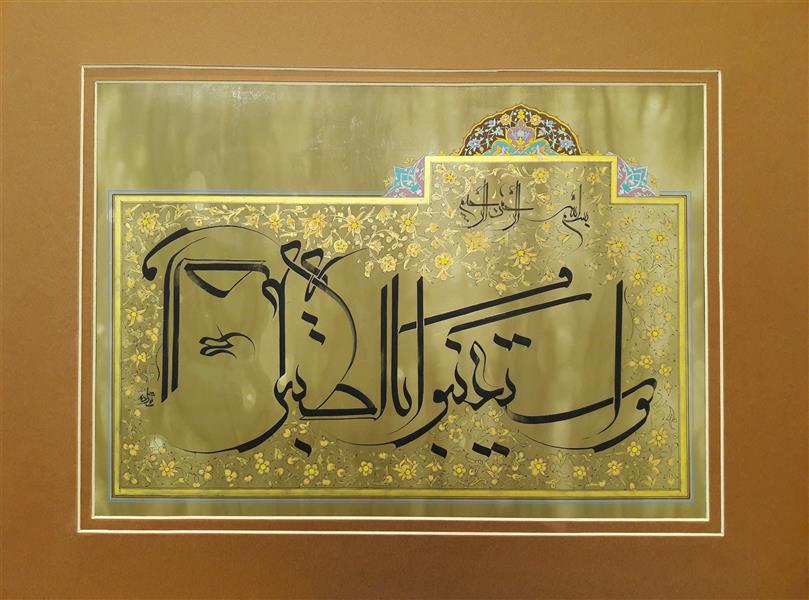 بسم الله الرحمن الرحيم
واستعينوا بالصبر